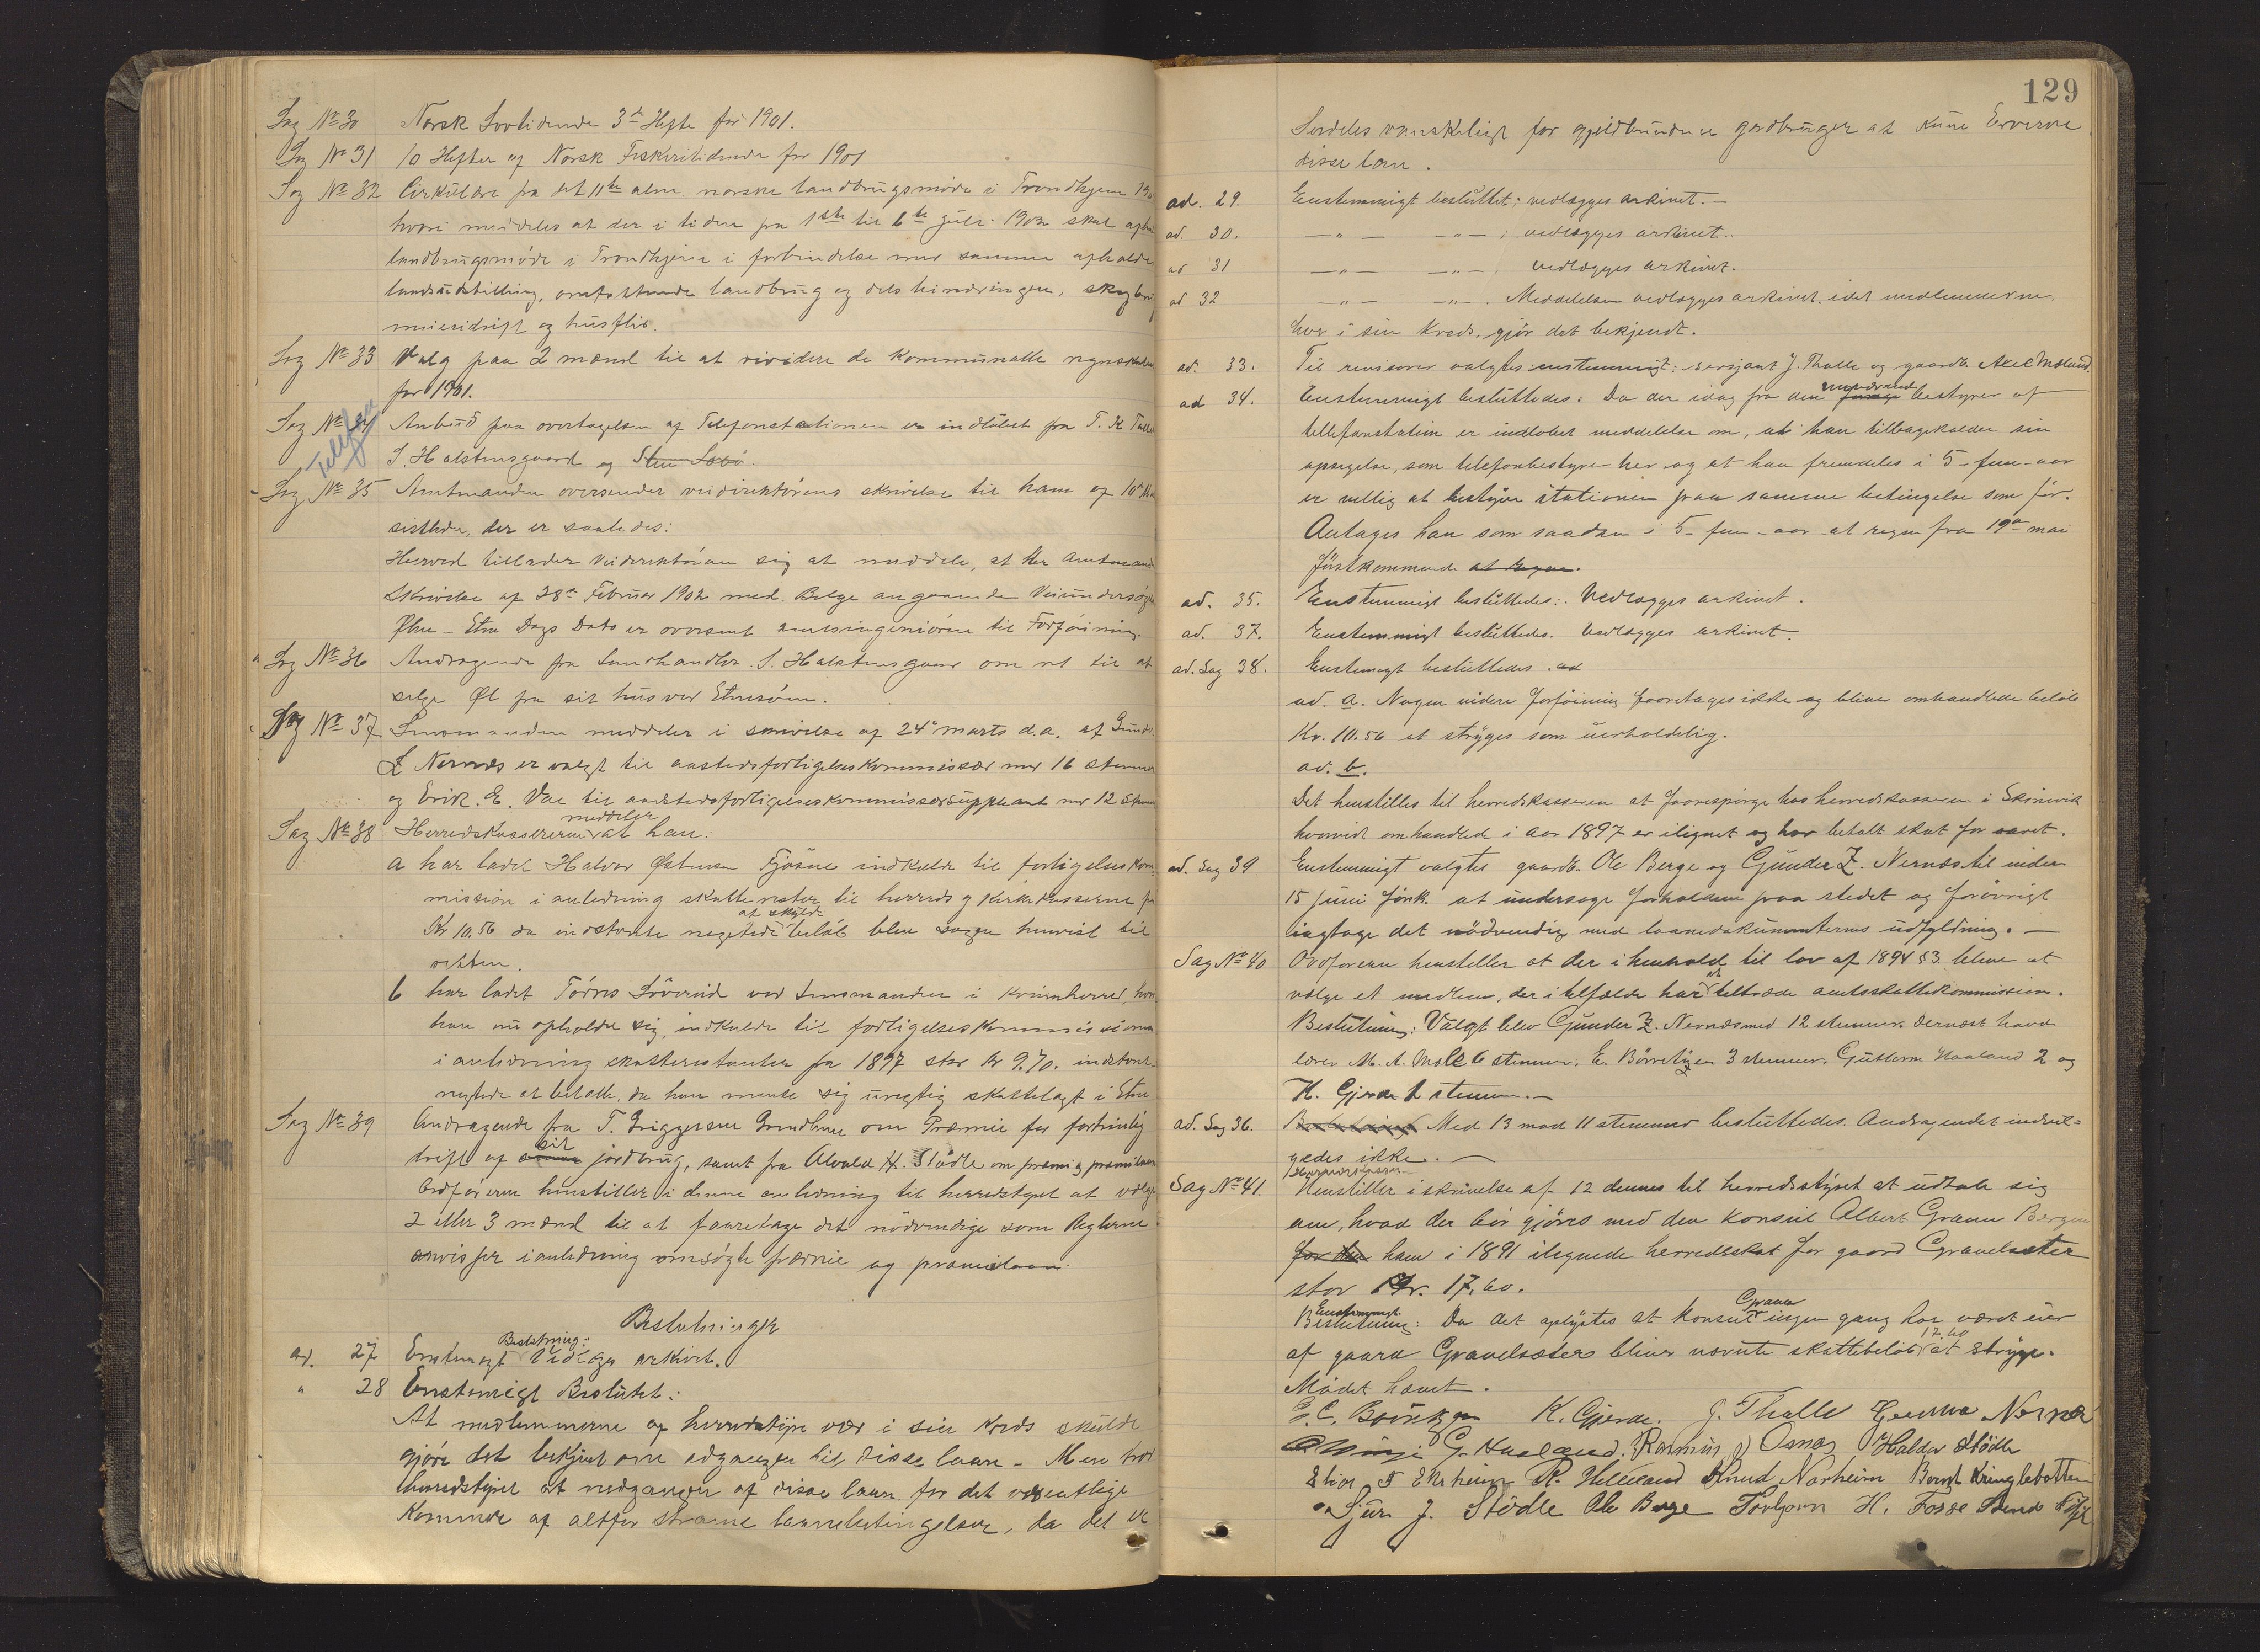 Sag No 30 Norsk Lovtidende 3die Hefte for 1901.
Sag No 31 10 Hefter af Norsk Fiskeritidende for 1901
Sag No 32 Cirkulære fra det 11te alm. norske landbrugsmøde i Trondhjem
hvori meddeles at der i tiden fra 1ste til 6te juli 1902 skal
landbrugsmøde i Trondhjem i forbindelse med samme afholdes
landsudstilling, omfattende landbrug og dets binæringer,
meieridrift og husflid.
Sag No 33 Valg paa 2 mænd til at rividere de kommunalle regnskaber
for 1901.
Sag No 34 Anbud paa overtagelsen af Telefonstationen er indløbet fra T. K.
Telefon
S. Halstensgaard og Sten Sæbø.
Sag No 35 Amtmanden oversender veidirektørens skrivelse til ham af 10de
sistleden, der er saaledes:
Herved tillader Veidirektøren sig at meddele, at Hr Amtmand
Skrivelse af 28de Februar 1902 med Bilge angaaende
Ølen - Etne Dags Dato er oversent amtsingeniøren til Forføining.
Sag No 36 Andragende fra Landhandler S. Halstensgaard om ret til at
selge Øl fra sit hus ved Etnesøen.
Sag No 37 Lensmanden meddeler i skrivelse af 24de marts d.a. at Gunder
Z Nernæs er valgt til aastedsforligelseskommissær med 16 stemmer
og Erik. E. Vae til aastedsforligelseskommissærsuppleant med 12
Sag No 38 Herredskassereren meddeler at han:
a har ladet Halvor Østensen Fjøsne indkalde til forligelseskom
mission i anledning skatterester til herreds og Kirkekasserne
Kr 10.56 da indstevnte negtede at skylde beløb blev sagen henvist til
retten.
b har ladet Tørres Løvereid ved Lensmanden i Kvinnherred, hvor
han nu opholder sig, indkalde til forligelseskommissionen
i anledning skatterestantse for 1897 stor kr 9.70. indstevnte
negtede at betalle, da han mente sig uregtig skattelagt i Etne
Sag No 39 Andragende fra T. Triggesen Grindheim om Præmie for fortrinlig
drift af sit jordbrug, samt fra Alvald H. Stødle om præmi og
Ordføreren henstiller i denne anledning til herredstyret at vælge
2 eller 3 mænd til at faaretage det nødvendige som Reglerne
anviser i anledning ansøgte præmie og præmielaan.
Beslutninger
ad. 27 Enstemigt Beslutning: Vedlægges arkivet.
" 28 Enstemigt Beslutet:
At medlemmerne af herredstyre vær i sin Kreds skulde
gjøre det bekjent om adgangen til disse laan - Men tror
herredstyret at nedgangen af disse laan for det væsentlige
kommer af altfor stramme laanebetingelser, da det er
129
Særdeles vanskeligt for gjeldbundne gardbruger at kune Erverve
disse laan.
ad. 29. Enstemmigt besluttet: vedlægges arkivet. —
ad. 30. — " — — " — : vedlægges arkivet.
ad 31 — " — — " — vedlægges arkivet.
ad 32 — " — — " — . Meddelelsen vedlægges arkivet, idet medlemmerne,
hver i sin kreds, gjør det bekjendt.
ad. 33. Til revisorer valgtes enstemmigt: sersjant J. Thalle og gaardb. Aksel Mæland.
ad 34. Enstemmigt besluttedes: Da der idag fra den nuværende forrige bestyrer af
tellefonstation er indløbet meddelelse om, at han tilbagekalder sin
opsigelse, som telefonbestyrer her og at han fremdeles i 5 - fem - aar
er villig at bestyre stationen paa samme betingelse som før.
Antages han som saadan i 5 - fem - aar - at regne fra 19de mai
førstkommende at regne.
ad. 35. Enstemmigt besluttedes: Vedlægges arkivet.
ad. 37. Enstemmigt besluttedes. Vedlægges arkivet.
ad. Sag 38. Enstemigt besluttedes. ad
ad. a. Nogen videre forføining foretages ikke og bliver omhandlede beløb
Kr. 10.56 at stryges som uerholdelig.
ad. b.
Det henstilles til herredskassereren at forespørge hos herredskassereren i
hvorvidt omhandled i aar 1897 er ilignet og har betalt skat for aaret.
ad. Sag 39 Enstemmigt valgtes gaardb. Ole Berge og Gunder Z. Nernæs til inden
15 juni førstk. at undersøge forholdene paa stedet og forøvrigt
iagtage det nødvendig med laanedokumenternes udfyldning. —
Sag No 40 Ordføreren henstiller at der i henhold til lov af 1894 § 3 bliver at
vælge et medlem, der i tilfælde har at tiltræde amtsskattekommission.
Beslutning: Valgt blev Gunder Z. Nernæs med 12 stemmer. dernæst havde
lærer M. A. Moe 6 stemmer. E. Børretzen 3 stemmer, Guttorm Haaland 2 og
K. Gjerde 1 stemme. —
ad. Sag 36. Med 13 mod 11 stemmer besluttedes. Andragendet indvil=
gedes ikke. —
Sag No 41. Herredskasser. Henstiller i skrivelse af 12 dennes til herredsstyret at udtale sig
om, hvad der bør gjøres med den konsul Albert Gran Bergen
for den ham i 1891 ilignede herredsskat for gaard Gravelsæter
stor Kr. 17,60.
Enstemmigt Beslutning: Da det oplystes at konsul Gran ingen gang har været eier
af gaard Gravelsæter bliver nævnte skattebeløb 17.60 at stryge.
Mødet hævet.
E. C. Børretzen K. Gjerde. J. Thalle Gunder Nernæs
G. Haaland. Rasmus J Osnæs Halder Stødle
R. Helleland Knud Narheim Bernt Kringlebotten
Sjur J. Stødle Ole Berge Torbjørn H. Fosse